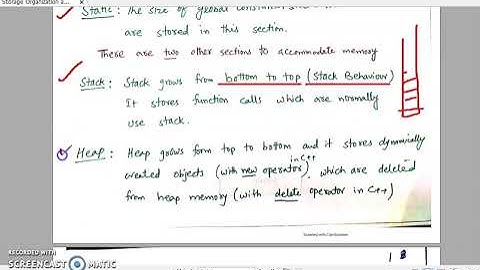 Storage Organization a...
Static: The size of global constants
are stored in this section.
There are two other sections to accommodate memory
Stack: Stack grows from bottom to top (Stack Behaviour)
It stores function calls which are normally
use stack.
Heap: Heap grows form top to bottom and it stores dynamically
created objects (with new operator in C++), which are deleted
from heap memory (with delete operator in C++)
Scanned with CamScanner
1 B
RECORDED WITH
SCREENCAST MATIC